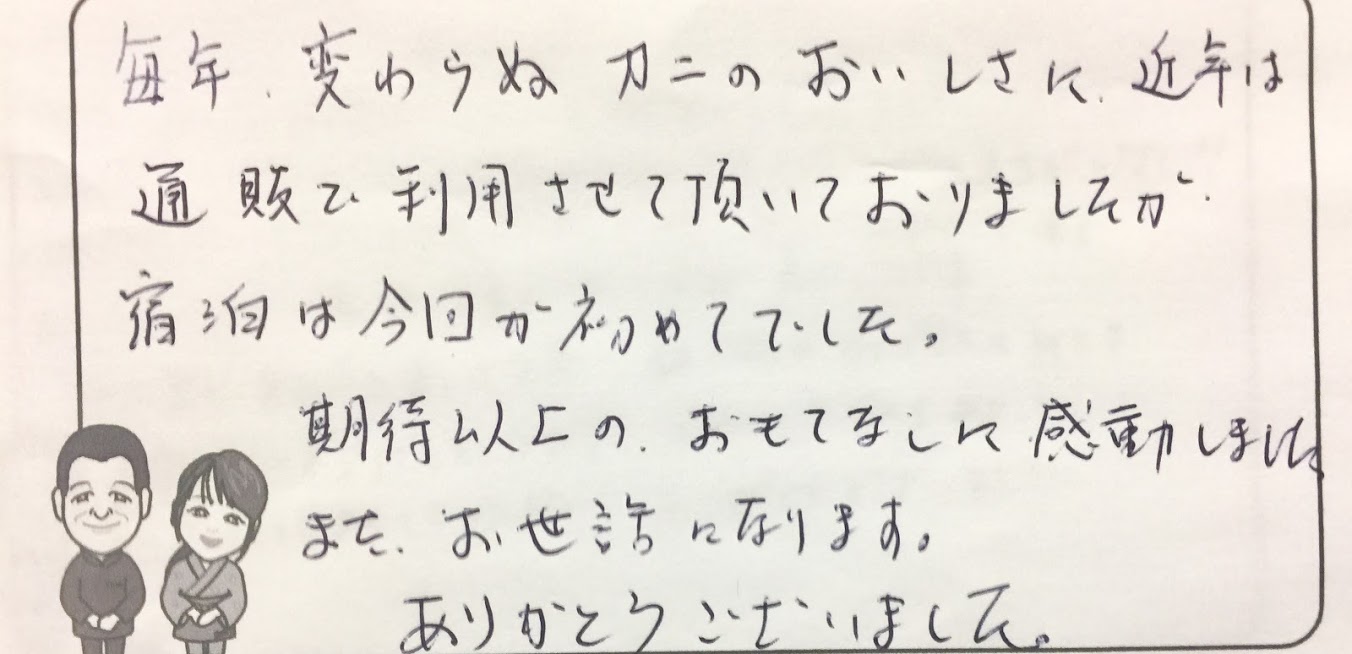 毎年、変わらぬ カニの おいしさに、近年は
通販で利用させて頂いておりましたが、
宿泊は今回が初めてでした。
期待以上の、おもてなしに感動しました
また、お世話になります。
ありがとうございました。